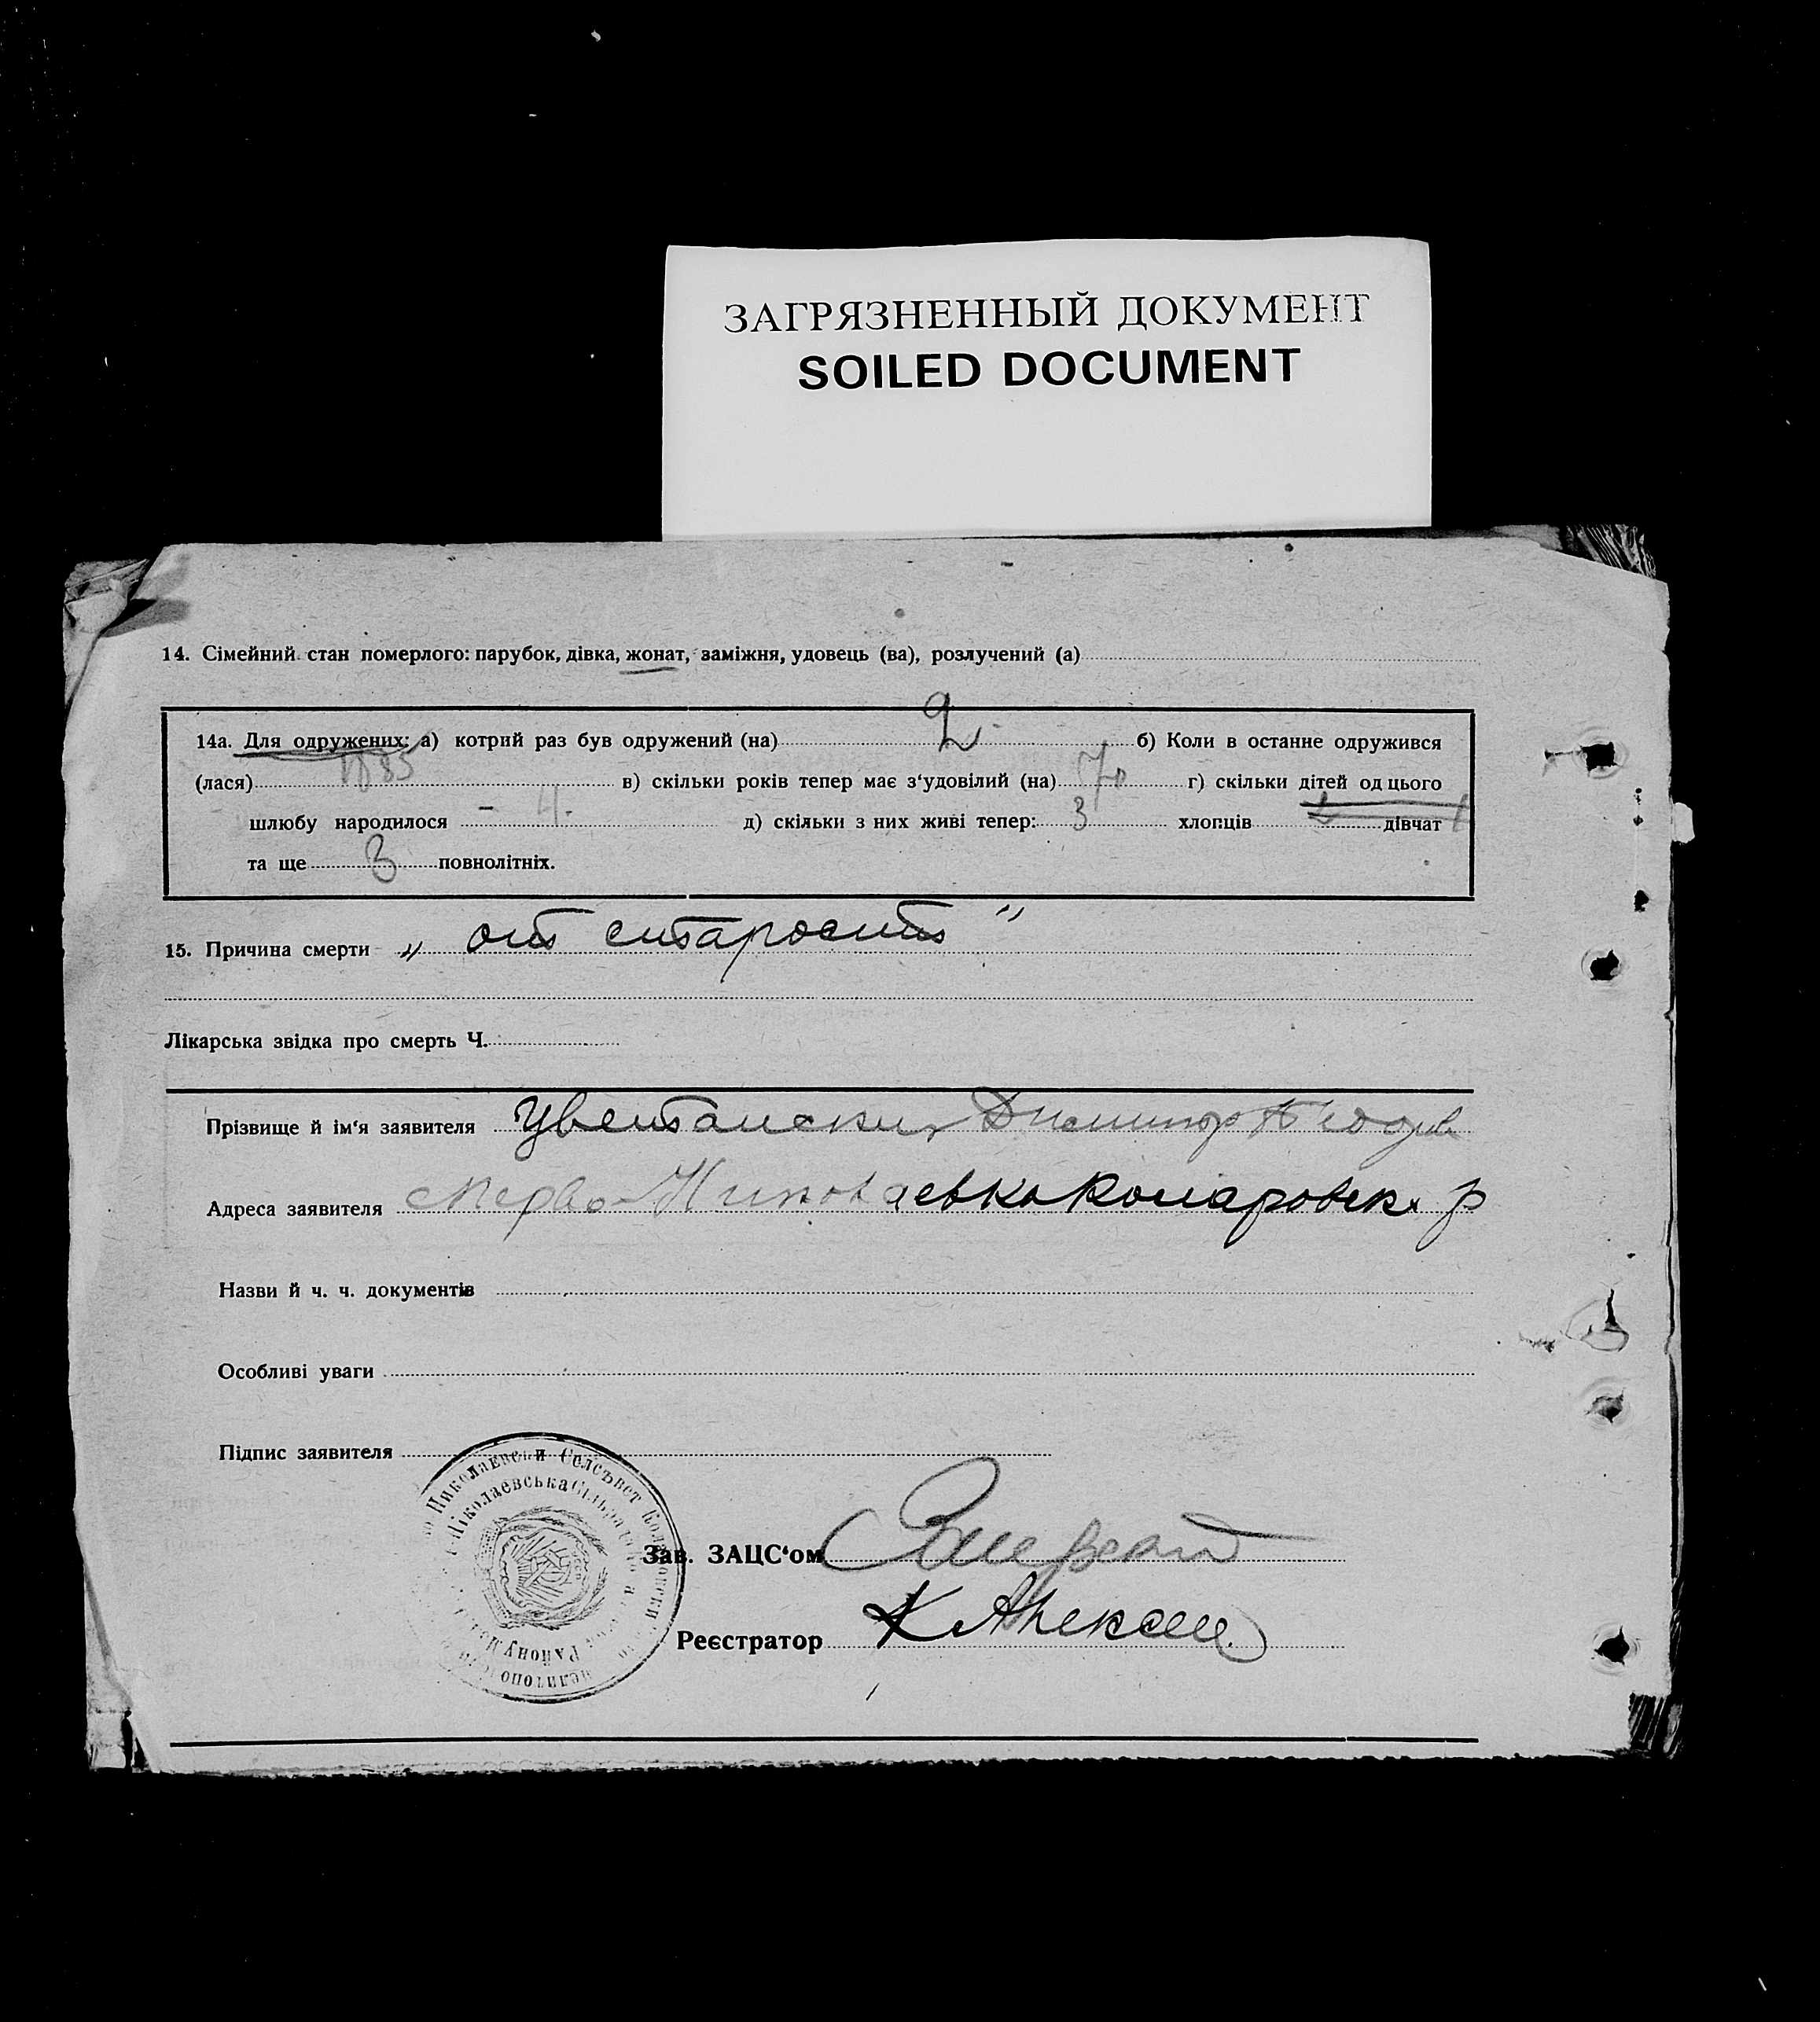 ЗАГРЯЗНЕННЫЙ ДОКУМЕНТ
SOILED DOCUMENT
14. Сімейний стан померлого: парубок, дівка, жонат, заміжня, удовець (ва), розлучений (а)
2
14а. Для одружених: а) котрий раз був одружений (на) б) Коли в останне одружився
(лася) 1885 в) скільки років тепер має з‘удовілий (на) 70 г) скільки дітей од цього
шлюбу народилося - 4. д) скільки з них живі тепер: 3 хлопців дівчат 1
та ще 3 повнолітніх.
15. Причина смерти „ от старости "
Лікарська звідка про смерть Ч.
Прізвище й ім‘я заявителя Димитр
Адреса заявителя Комаровск. р
Назви й ч. ч. документів
Особливі уваги
Підпис заявителя
Николаевски Селсъвет
Миколаевська Сільрада
Району
Зав. ЗАЦС‘ом
Реєстратор К Алексеи